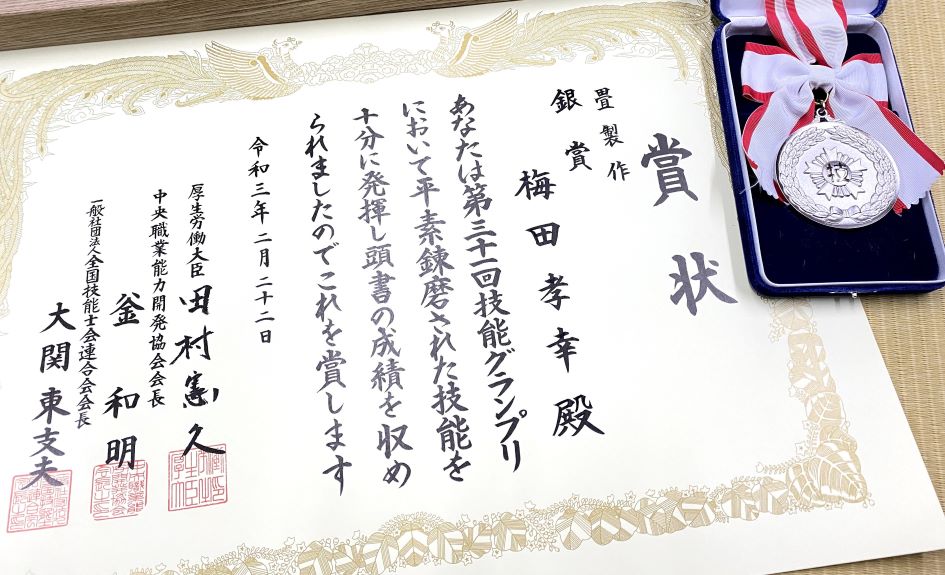 賞状
畳製作
銀賞
梅田孝幸殿
あなたは第三十一回技能グランプリ
において平素錬磨された技能を
十分に発揮し頭書の成績を収め
られましたのでこれを賞します
令和三年二月二十二日
厚生労働大臣 田村憲久
中央職業能力開発協会会長
釜和明
一般社団法人全国技能士会連合会会長
大関東支夫